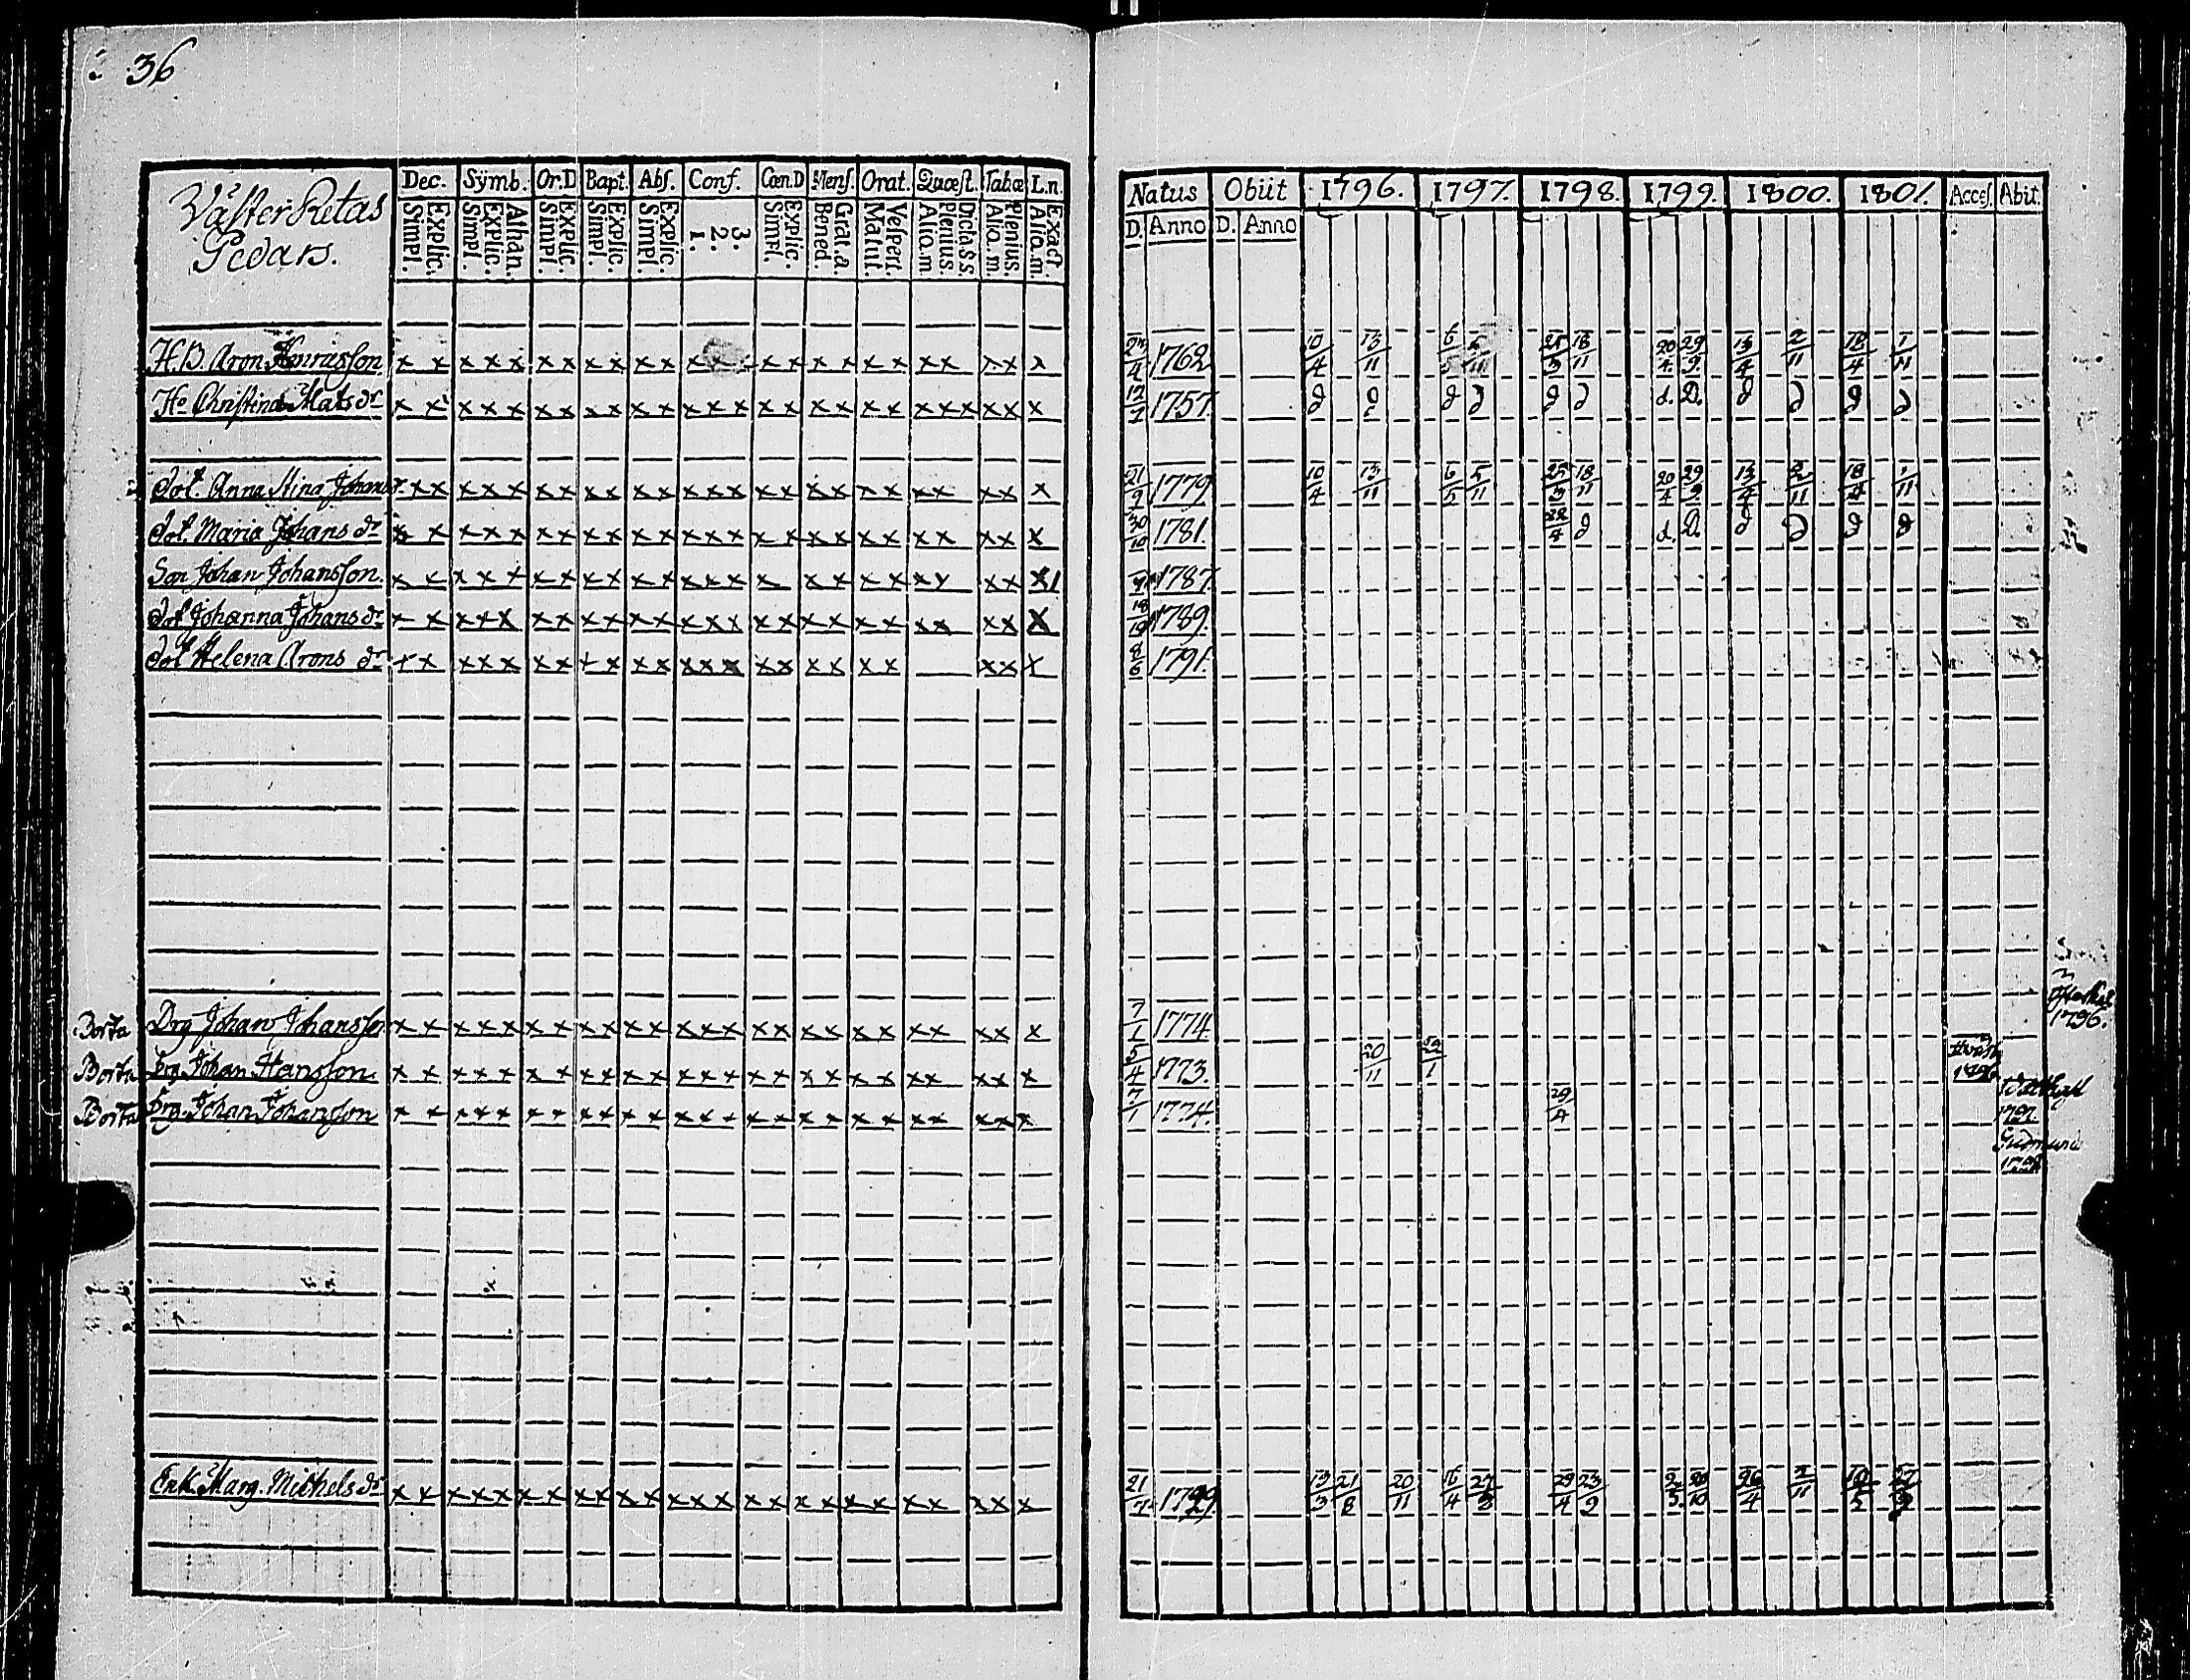 36
Väster Retas
Gedars.
Dec. Symb. Or.D Bapt. Abs. Conf. Cœn.D Mens. Orat. Quæst. Tabæ L.n.
Simpl. Explic. Simpl. Explic. Athan. Simpl. Explic. Simpl. Explic. Simpl. Explic. 1. 2. 3. Simpl. Explic. Bened. Grat.a. Matut. Vespert. Aliq.m Plenius. Dicta.s.s. Aliq.m. Plenius. Aliq.m. Exact.
Natus Obiit 1796. 1797. 1798. 1799. 1800. 1801. Acces. Abit.
D. Anno D. Anno
H.B. Aron Henricsson x x x x x x x x x x x x x x x x x x x x x x x 1762 10/4 13/11 6/5 25/3 18/11 20/4. 29/9. 13/4 2/11 18/4 1/11
Ho Christina Mats dr x x x x x x x x x x x x x x x x x x x x x x x x x x 12/7 1757. d d d d d d d. D. d d d d
Dot. Anna Stina Johans dr. x x x x x x x x x x x x x x x x x x x x x x x x x 21/9 1779 10/4 13/11 6/5 5/11 25/3 18/11 20/4 29/9. 13/4 2/11 18/4 1/11
Dot. Maria Johans dr x x x x x x x x x x x x x x x x x x x x x x x x x 30/10 1781. 22/4 d d. D. d d d d
Son Johan Johansson. x x x x x x x x x x x x x x x x x x x x x x x x 1787.
Dot Johanna Johans dr x x x x x x x x x x x x x x x x x x x x x x x x x 1789.
Dot Helena Arons dr x x x x x x x x x x x x x x x x x x x x x x x 8/6 1791.
Borta Drg Johan Johansson x x x x x x x x x x x x x x x x x x x x x x x x x 7/1 1774 1796.
Borta Drg Johan Hansson. x x x x x x x x x x x x x x x x x x x x x x x x x 5/4 1773. 20/11
1797.
Borta Drg. Johan Johansson x x x x x x x x x x x x x x x x x x x x x x x x x 7/1 1774. 29/4
Gudmund
Enk. Marg. Michels dr x x x x x x x x x x x x x x x x x x x x x x x x x 21/7 1729. 13/3 21/8 20/11 16/4 29/4 23/9 26/4 2/11